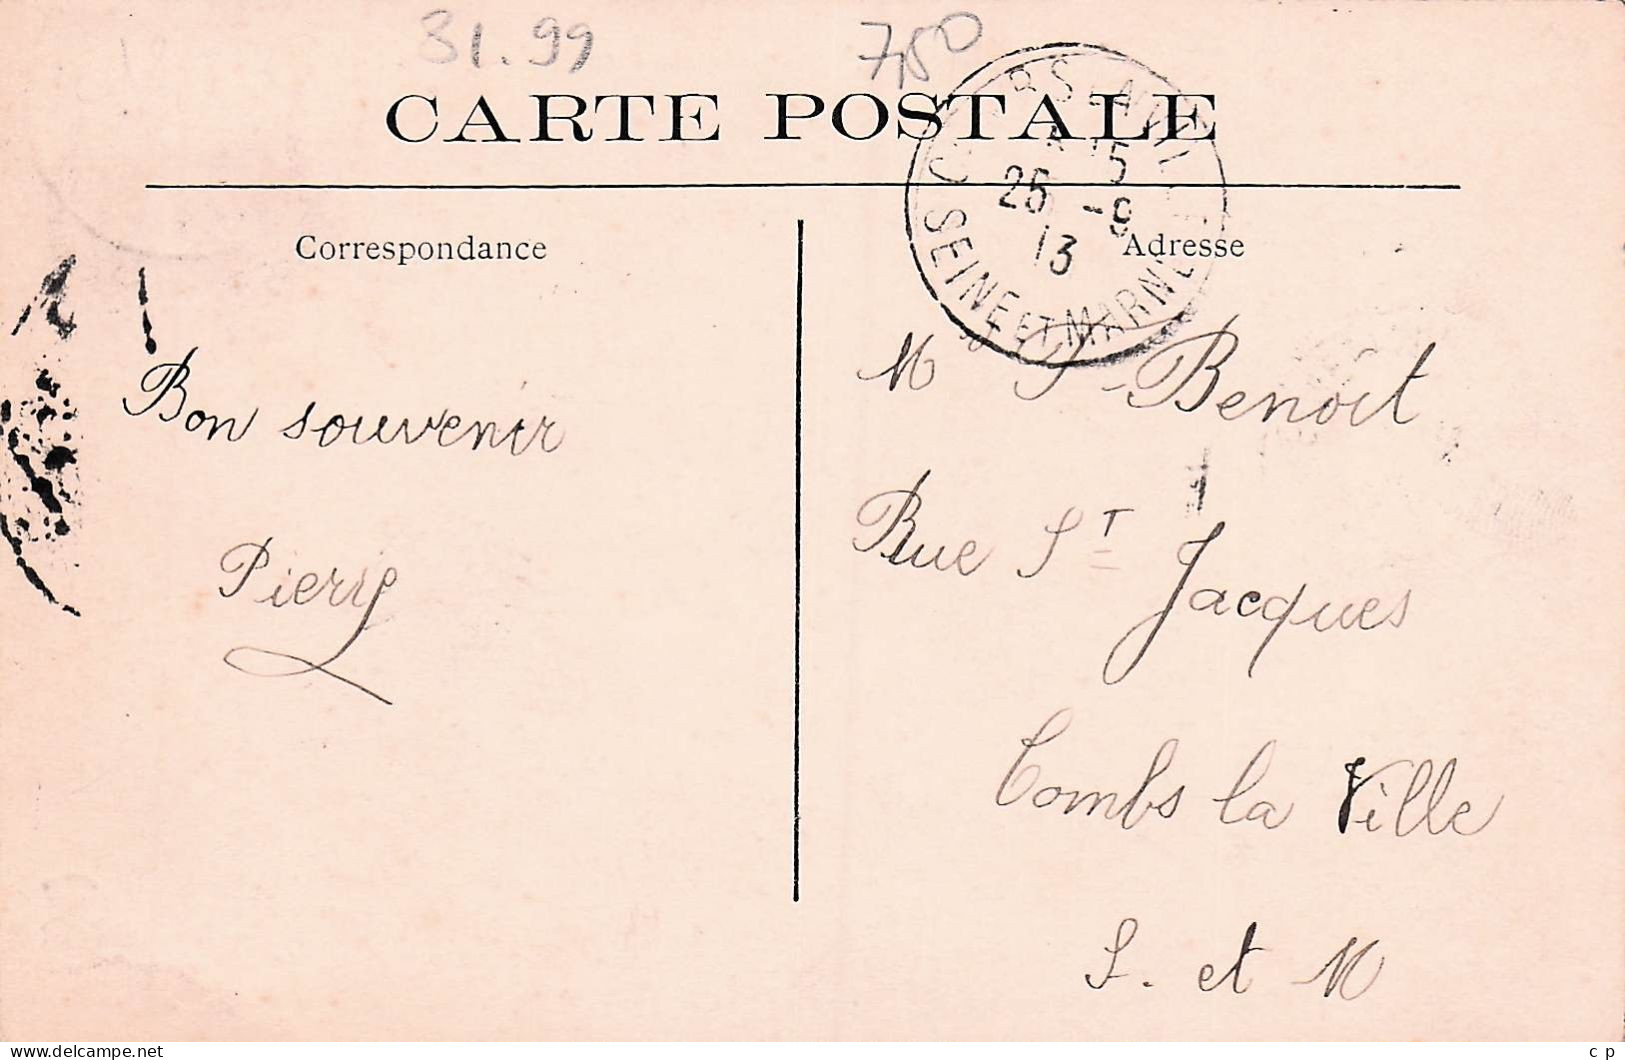 31.99
7,50
CARTE POSTALE
15
25 -9
13
SEINE ET MARNE
Correspondance
Adresse
Bon souvenir
M Benoit
Rue St Jacques
Combs la Ville
S. et M
www.delcampe.net
c p